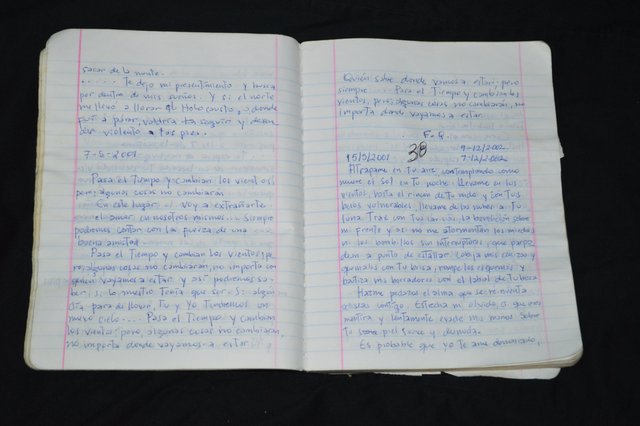 sacar de la mente.
...... Te dejo mi presentimiento y busca
por dentro de mis sueños. Y si el norte
me llevo a llorar al Holocausto, a donde
fui a parar, valdría
7-5-2001
Pasa el Tiempo y cambian los vientos
pero, algunas cosas no cambiarán
En este lugar voy a extrañarte
el amar en nosotros mismos... Siempre
podremos contar con la pureza de una
buena amistad.
Pasa el Tiempo y cambian los vientos; pe-
ro, algunas cosas no cambiarán, no importa con
quien vayamos a estar y así podremos sa-
ber; si lo nuestro tenía que ser o si algún
día para de llover, Tu y yo Tendremos un
nuevo ciclo.... Pasa el Tiempo y cambian
los vientos; pero, algunas cosas no cambiarán,
no importa donde vayamos a estar.
Quién sabe donde vamos a estar; pero
siempre... Pasa el Tiempo y cambian los
vientos, pero; algunas cosas no cambiarán, no
importa donde vayamos a estar.
F-Q.
38
9-12/2002
15/5/2001 7-12/2002
Atrápame en Tu arte, contemplando como
muere el sol en Tu noche. Llévame en los
vientos, hasta el rincón de Tu nido y con Tus
besos vulnerables, llévame de las nubes a Tu
luna. Trae con Tu canción, la bendición sobre
mi frente y así no me atormenten los miedos
ni los bombillos sin interruptores, que pare-
dan a punto de estallar. Cobija mis
con Tu brisa, rompe los esquemas y
bautiza mis borradores con el labial de Tu boca
Hazme pedazos el alma que se reinventa
a solas contigo. Estrecha mi olvido, si que eres
mentira y lentamente evade mis manos sobre
Tu piel suave y desnuda.
Es probable que yo Te ame demasiado,